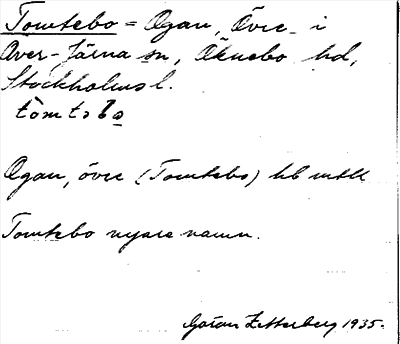 Tomtebo = Ogan, Övre i
Över-Järna sn, Öknebo hd,
Stockholms l.
tòmtəbo
Ogan, övre (Tomtebo) hb mtlk
Tomtebo nyare namn.
Göran Zetterberg 1935.